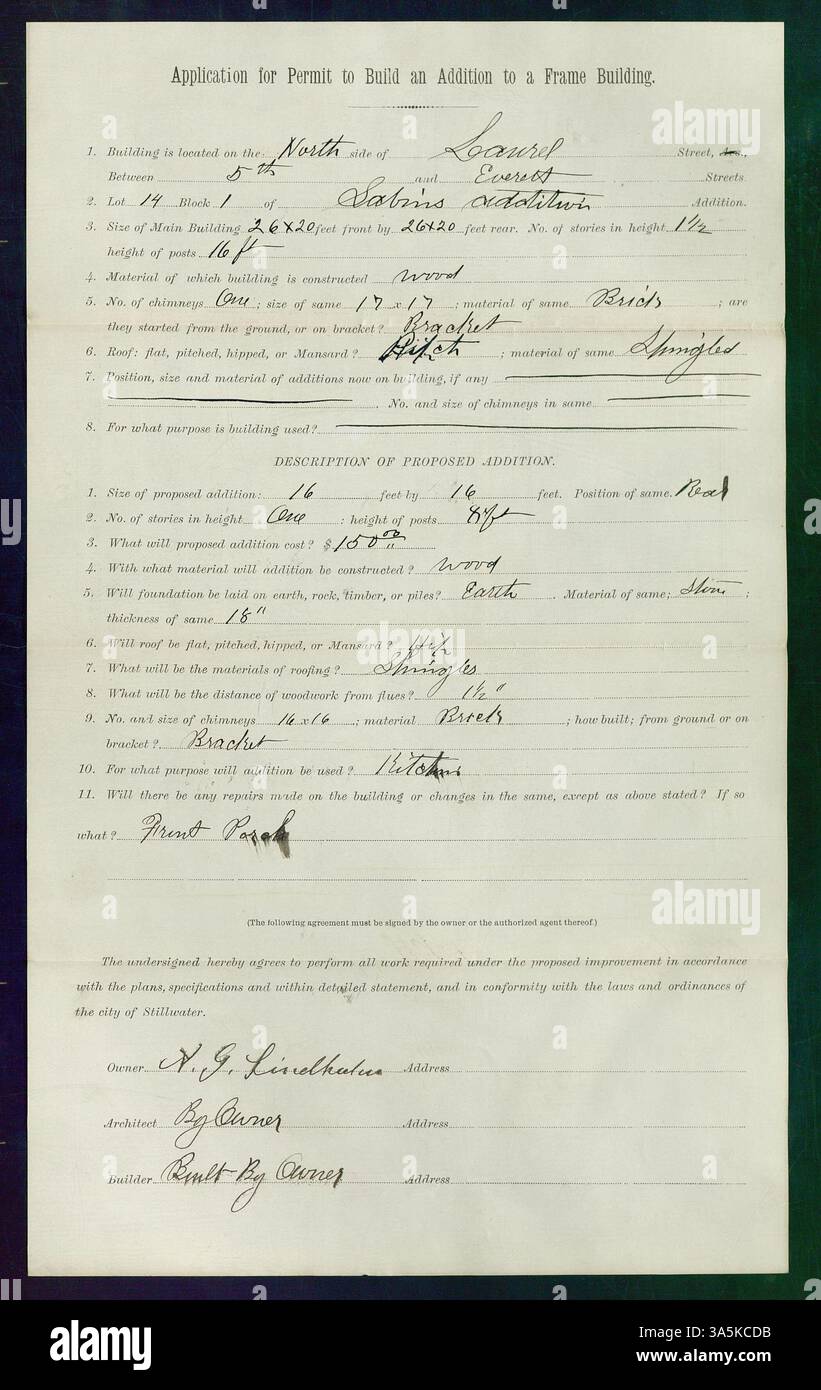 Application for Permit to Build an Addition to a Frame Building.
1. Building is located on the North side of Laurel Street, Ave.,
Between 5th and Everett Streets
2. Lot 14 Block 1 of Sabins addition Addition.
3. Size of Main Building 26x20 feet front by 26x20 feet rear. No. of stories in height 1 1/2
height of posts 16 ft
4. Material of which building is constructed wood
5. No. of chimneys One ; size of same 17 x 17 ; material of same Brick ; are
they started from the ground, or on bracket? Bracket
6. Roof: flat, pitched, hipped, or Mansard? Pitch ; material of same Shingled
7. Position, size and material of additions now on building, if any
No. and size of chimneys in same
8. For what purpose is building used?
DESCRIPTION OF PROPOSED ADDITION.
1. Size of proposed addition: 16 feet by 16 feet. Position of same. Rear
2. No. of stories in height One : height of posts 8 ft
3. What will proposed addition cost? $150 00
4. With what material will addition be constructed? wood
5. Will foundation be laid on earth, rock, timber, or piles? Earth . Material of same; Stone ;
thickness of same 18"
6. Will roof be flat, pitched, hipped, or Mansard? Hip
7. What will be the materials of roofing? Shingles
8. What will be the distance of woodwork from flues? 1 1/2"
9. No. and size of chimneys 16 x 16 ; material Brick ; how built; from ground or on
bracket? Bracket
10. For what purpose will addition be used?
11. Will there be any repairs made on the building or changes in the same, except as above stated? If so
what? Front Porch
(The following agreement must be signed by the owner or the authorized agent thereof.)
The undersigned hereby agrees to perform all work required under the proposed improvement in accordance
with the plans, specifications and within detailed statement, and in conformity with the laws and ordinances of
the city of Stillwater.
Owner G. Lindholm Address
Architect By Owner Address
Builder Built By Owner Address
alamy
alamy
alamy
alamy
Image ID: 3A5KCDB
www.alamy.com